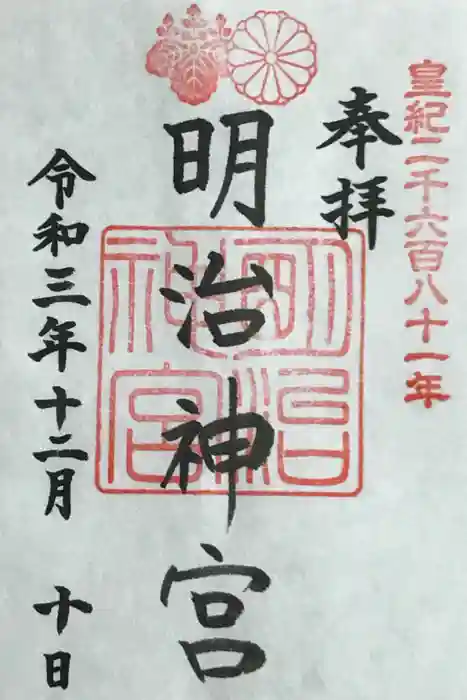 皇紀二千六百八十一年
奉拝
明治神宮
明治神宮
令和三年十二月十日